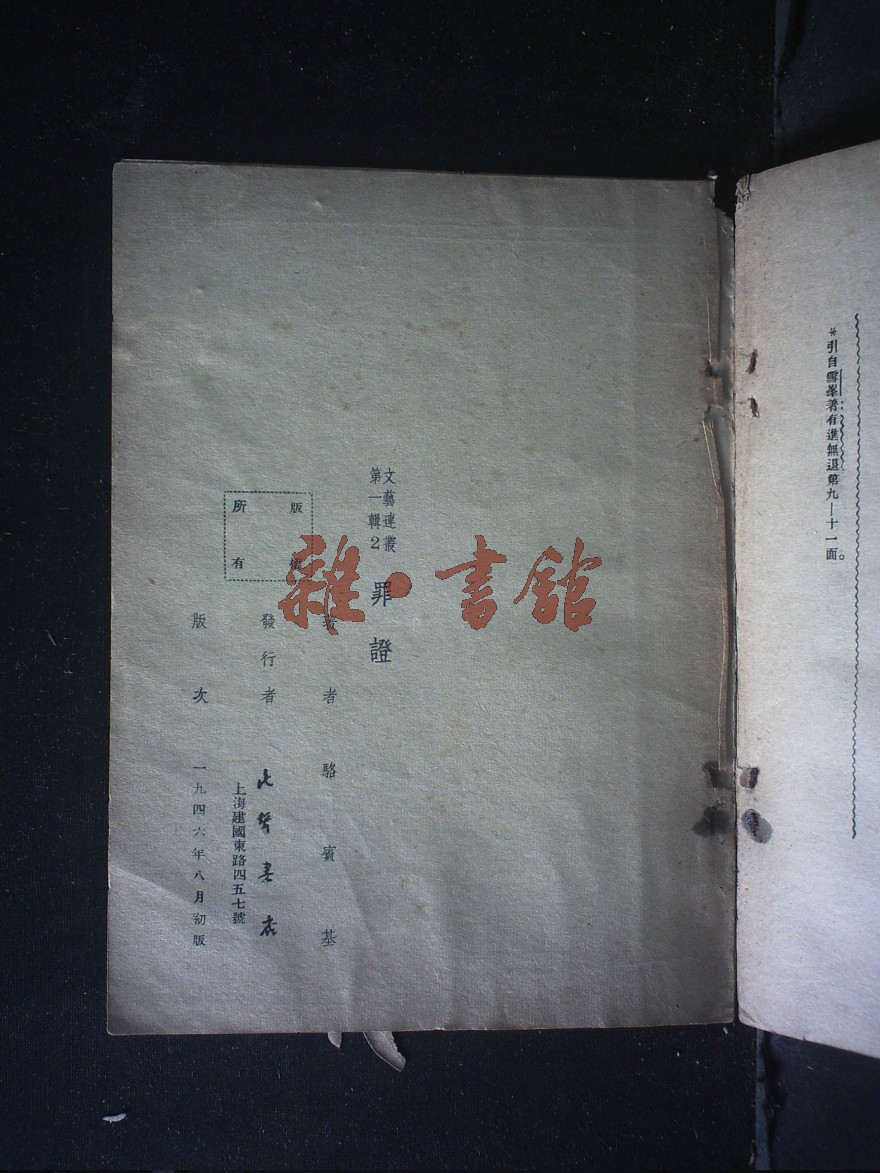 *引自雪峯著有進無退第九—十一面。
文藝連叢
第一輯2
罪證
著者 駱賓基
發行者 書店
上海建國東路四五七號
版權
所有
版次 一九四六年八月初版
雜·書館